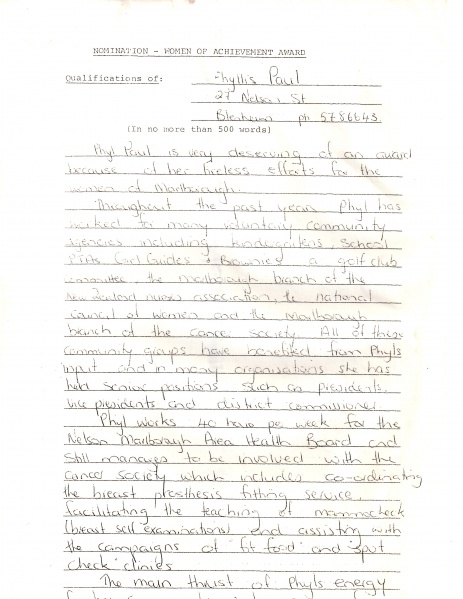 NOMINATION - WOMEN OF ACHIEVEMENT AWARD
Qualifications of: Phyllis Paul
27 Nelson St
Blenheim ph 5786643
(In no more than 500 words)
Phyl Paul is very deserving of an award
because of her tireless efforts for the
women of Marlborough.
Throughout the past years Phyl has
worked for many voluntary community
agencies including kindergartens, School
PTA's Girl Guides & Brownies a golf club
committee, the Marlborough branch of the
New Zealand nurses association, the national
council of women and the Marlborough
branch of the cancer society. All of these
community groups have benefited from Phyl's
input and in many organisations she has
held senior positions such as presidents,
vice presidents and district commissioner
Phyl works 40 hours per week for the
Nelson Marlborough Area Health Board and
still manages to be involved with the
cancer society which includes co-ordinating
the breast prosthesis fitting service,
facilitating the teaching of mammacheck
(breast self examinations) and assisting with
the campaigns of 'fit food' and 'spot
check' clinics
The main thrust of Phyl's energy